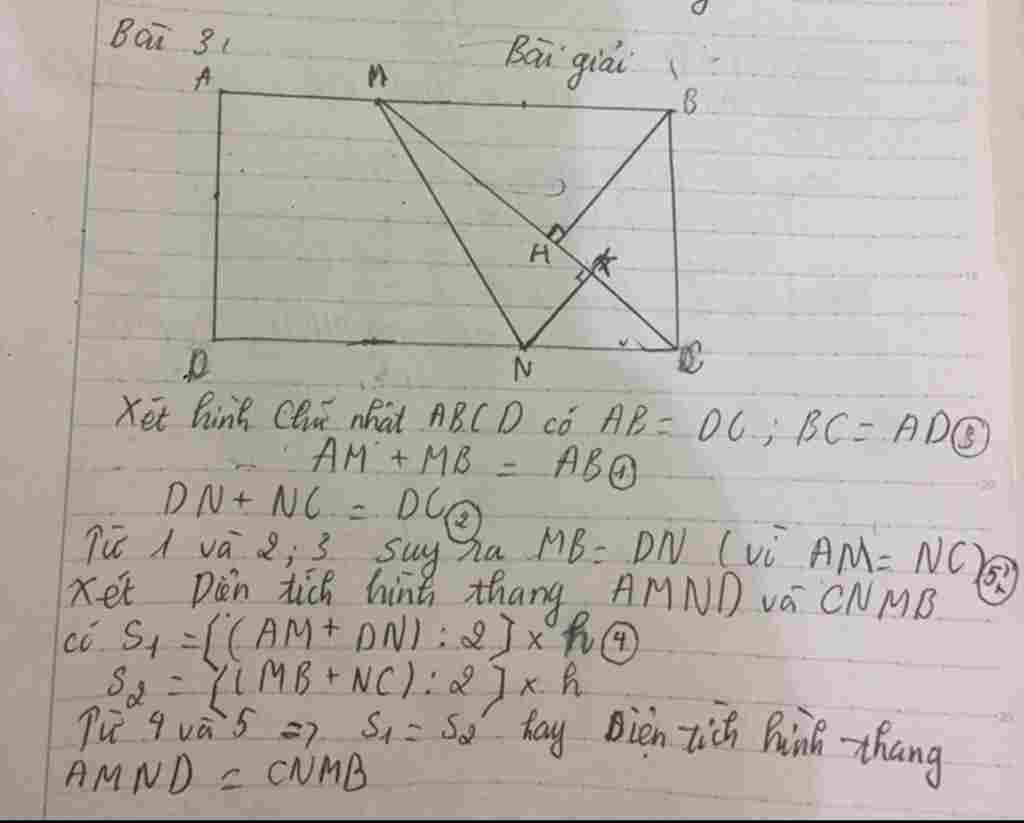 Bài 3,
Bài giải
A M B
H K
D N C
Xét hình Chữ nhật ABCD có AB = DC ; BC = AD ③
AM + MB = AB ①
DN + NC = DC ②
Từ 1 và 2 ; 3 suy ra MB = DN (vì AM = NC) ⑤
Xét Diện tích hình thang AMND và CNMB
có S₁ = [(AM + DN) : 2] x h ④
S₂ = [(MB + NC) : 2] x h
Từ 4 và 5 => S₁ = S₂ hay Diện tích hình thang
AMND = CNMB